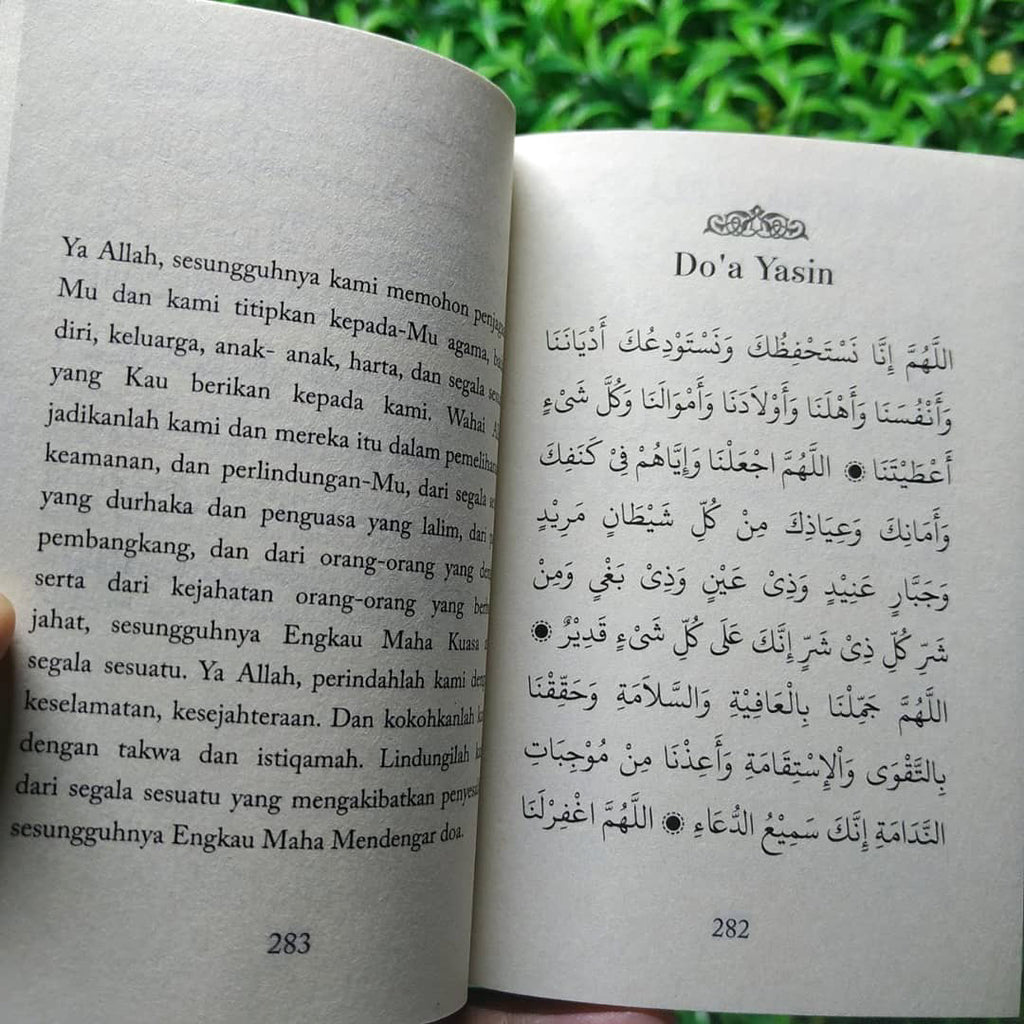 Do'a Yasin
اللَّهُمَّ إِنَّا نَسْتَحْفِظُكَ وَنَسْتَوْدِعُكَ أَدْيَانَنَا
وَأَنْفُسَنَا وَأَهْلَنَا وَأَوْلَادَنَا وَأَمْوَالَنَا وَكُلَّ شَىْءٍ
أَعْطَيْتَنَا ۞ اللَّهُمَّ اجْعَلْنَا وَإِيَّاهُمْ فِيْ كَنَفِكَ
وَأَمَانِكَ وَعِيَاذِكَ مِنْ كُلِّ شَيْطَانٍ مَرِيْدٍ
وَجَبَّارٍ عَنِيْدٍ وَذِيْ عَيْنٍ وَذِيْ بَغْيٍ وَمِنْ
شَرِّ كُلِّ ذِيْ شَرٍّ إِنَّكَ عَلَى كُلِّ شَىْءٍ قَدِيْرٌ ۞
اللَّهُمَّ جَمِّلْنَا بِالْعَافِيْةِ وَالسَّلاَمَةِ وَحَقِّقْنَا
بِالتَّقْوَى وَاْلإِسْتِقَامَةِ وَأَعِذْنَا مِنْ مُوْجِبَاتِ
النَّدَامَةِ إِنَّكَ سَمِيْعُ الدُّعَاءِ ۞ اللَّهُمَّ اغْفِرْلَنَا
282
Ya Allah, sesungguhnya kami memohon
Mu dan kami titipkan kepada-Mu agama,
diri, keluarga, anak- anak, harta, dan segala
yang Kau berikan kepada kami. Wahai
jadikanlah kami dan mereka itu dalam
keamanan, dan perlindungan-Mu, dari segala
yang durhaka dan penguasa yang lalim, dari
pembangkang, dan dari orang-orang yang
serta dari kejahatan orang-orang yang
jahat, sesungguhnya Engkau Maha Kuasa
segala sesuatu. Ya Allah, perindahlah kami
keselamatan, kesejahteraan. Dan kokohkanlah
dengan takwa dan istiqamah. Lindungilah
dari segala sesuatu yang mengakibatkan
sesungguhnya Engkau Maha Mendengar doa.
283